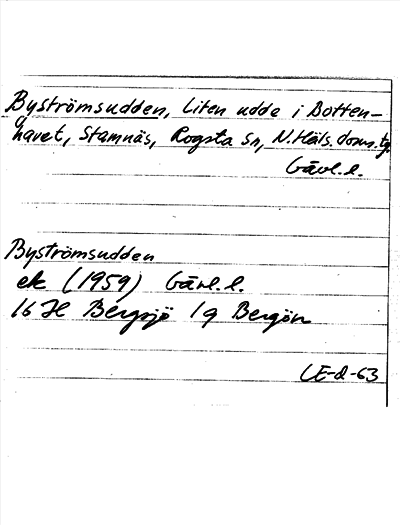 Byströmsudden, Liten udde i Botten-
havet, Stamnäs, Rogsta sn, N. Häls. doms. tg.
Gävl. l.
Byströmsudden
ek (1959) Gävl. l.
16 H Bergsjö 1 g Bergön
LE-d-63